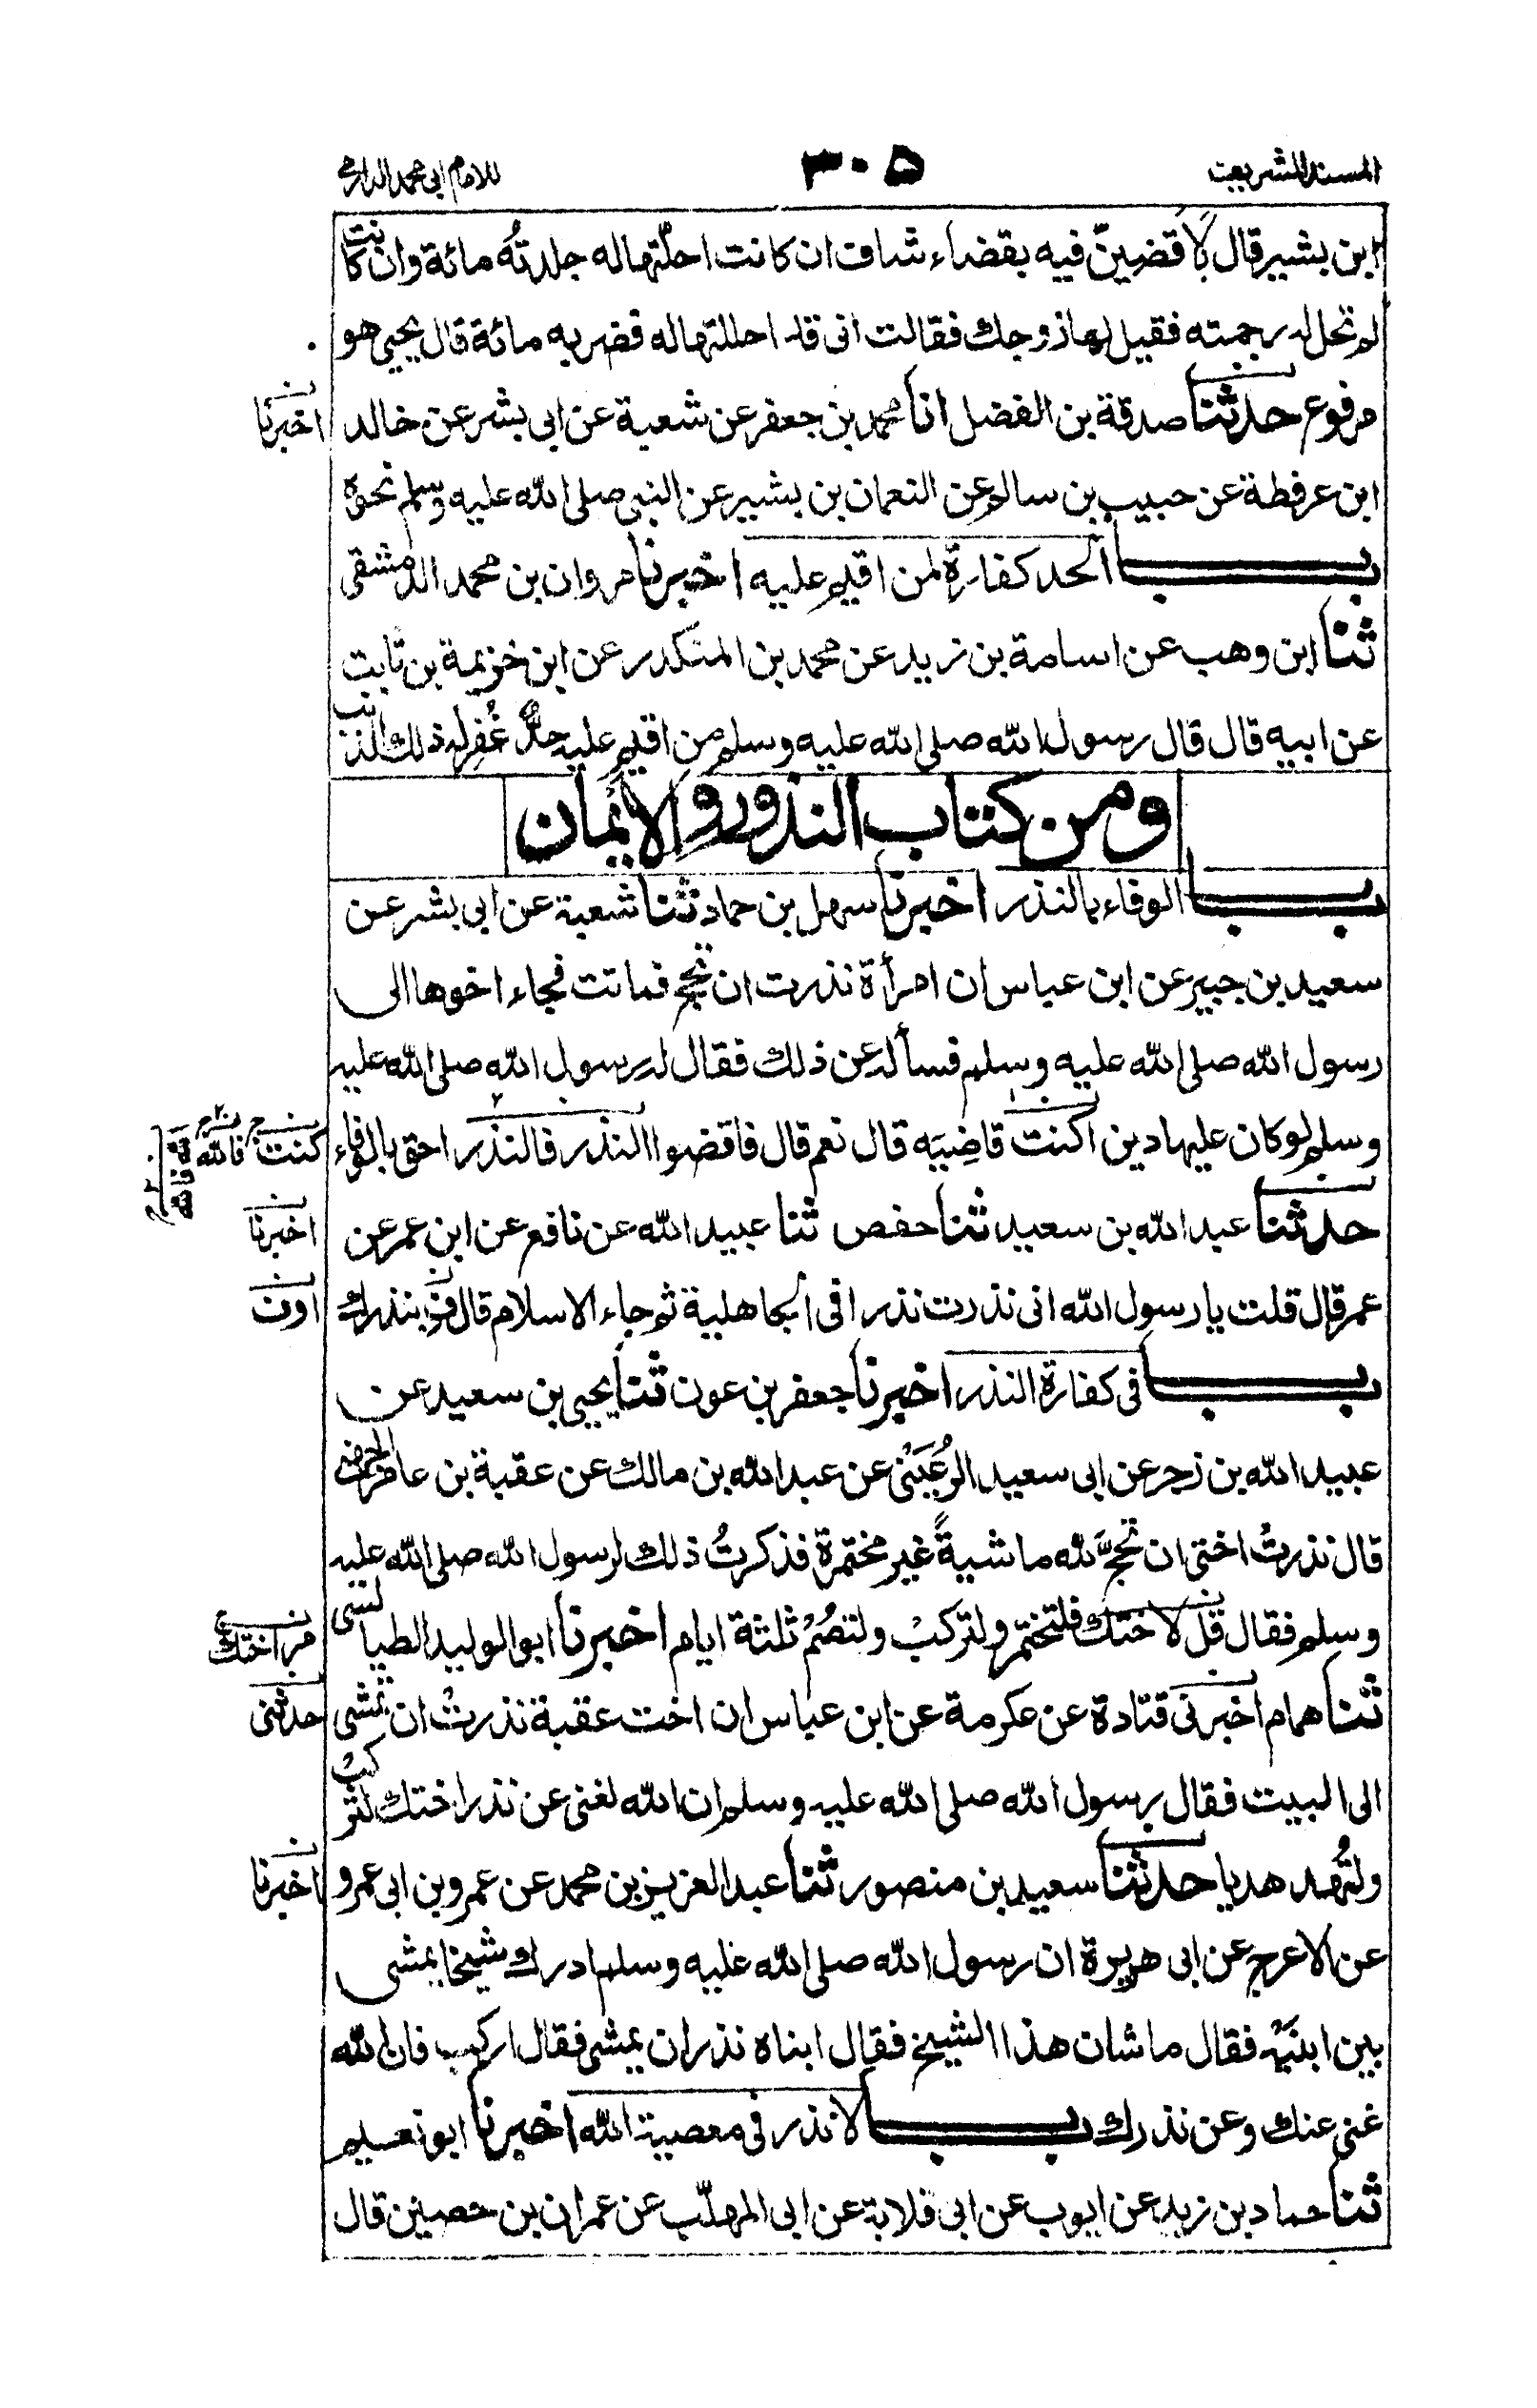 المسند الشريف ٣٠٥ للامام ابى محمد الدارمى
ابن بشير قال لَاَقضِيَنّ فيه بقضاء شاف ان كانت احلّتها له جلدتُه مائة وان كانت
لم تحل له رجمته فقيل لها زوجك فقالت انى قد احللتها له فضربه مائة قال يحيى هو
مرفوع حدثنا صدقة بن الفضل انا محمد بن جعفر عن شعبة عن ابى بشر عن خالد
اخبرنا
ابن عرفطة عن حبيب بن سالم عن النعمان بن بشير عن النبى صلى الله عليه وسلم نحوه
باب الحد كفارة لمن اقيم عليه اخبرنا مروان بن محمد الدمشقى
ثنا ابن وهب عن اسامة بن زيد عن محمد بن المنكدر عن ابن خزيمة بن ثابت
عن ابيه قال قال رسول الله صلى الله عليه وسلم من اقيم عليه حدٌّ غُفِر له ذلك الذنب
ومن كتاب النذور والأيمان
باب الوفاء بالنذر اخبرنا سهل بن حماد ثنا شعبة عن ابى بشر عن
سعيد بن جبير عن ابن عباس ان امرأة نذرت ان تحج فماتت فجاء اخوها الى
رسول الله صلى الله عليه وسلم فسأله عن ذلك فقال له رسول الله صلى الله عليه
وسلم لو كان عليها دين اكنت قاضِيَه قال نعم قال فاقضوا النذر فالنذر احق بالوفاء
كنت فالله
حدثنا عبد الله بن سعيد ثنا حفص ثنا عبيد الله عن نافع عن ابن عمر عن
اخبرنا
عمر قال قلت يا رسول الله انى نذرت نذرا فى الجاهلية ثم جاء الاسلام قال فِ بنذرك
اوف
باب فى كفارة النذر اخبرنا جعفر بن عون ثنا يحيى بن سعيد عن
عبيد الله بن زحر عن ابى سعيد الرُعَيْنى عن عبد الله بن مالك عن عقبة بن عامر الجهنى
قال نذرتْ اختى ان تحجّ لله ماشيةً غير مختمرة فذكرتُ ذلك لرسول الله صلى الله عليه
وسلم فقال قل لاختك فلتختمر ولتركبْ ولتصُمْ ثلثة ايام اخبرنا ابو الوليد الطيالسى
مر اختك
ثنا همام اخبرنى قتادة عن عكرمة عن ابن عباس ان اخت عقبة نذرتْ ان تمشى
حدثنى
الى البيت فقال رسول الله صلى الله عليه وسلم ان الله لغنى عن نذر اختك لتركبْ
ولتُهد هديا حدثنا سعيد بن منصور ثنا عبد العزيز بن محمد عن عمرو بن ابى عمرو
اخبرنا
عن الاعرج عن ابى هريرة ان رسول الله صلى الله عليه وسلم ادرك شيخا يمشى
بين ابنَيْه فقال ما شان هذا الشيخ فقال ابناه نذر ان يمشى فقال اركب فان الله
غنى عنك وعن نذرك باب لا نذر فى معصية الله اخبرنا ابو نعيم
ثنا حماد بن زيد عن ايوب عن ابى قلابة عن ابى المهلّب عن عمران بن حصين قال